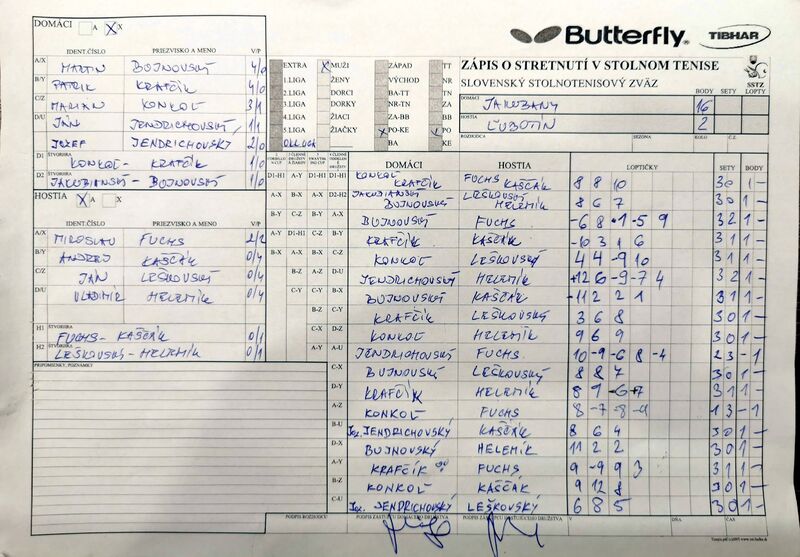 DOMÁCI A X
IDENT.ČÍSLO PRIEZVISKO A MENO V/P
A/X MARTIN BOJNOVSKÝ 4/0
B/Y PATRIK KRAFČÍK 4/0
C/Z MARIÁN KONKOĽ 3/1
D/U JÁN JENDRICHOVSKÝ 1/1
JOZEF JENDRICHOVSKÝ 2/0
D1 ŠTVORHRA KONKOĽ - KRAFČÍK 1/0
D2 ŠTVORHRA JAKUBIANSKÝ - BOJNOVSKÝ 1/0
HOSTIA A X
IDENT.ČÍSLO PRIEZVISKO A MENO V/P
A/X MIROSLAV FUCHS 2/2
B/Y ANDREJ KAŠČÁK 0/4
C/Z JÁN LEŠKOVSKÝ 0/4
D/U VLADIMÍR HELEMÍK 0/4
H1 ŠTVORHRA FUCHS - KAŠČÁK 0/1
H2 ŠTVORHRA LEŠKOVSKÝ - HELEMÍK 0/1
PRIPOMIENKY, POZNÁMKY
Butterfly TIBHAR
EXTRA X MUŽI ZÁPAD TT
1.LIGA ŽENY VÝCHOD NR
2.LIGA DORCI BA-TT TN
3.LIGA DORKY NR-TN ZA
4.LIGA ŽIACI ZA-BB BB
5.LIGA ŽIAČKY PO-KE PO
BA KE
ZÁPIS O STRETNUTÍ V STOLNOM TENISE
SLOVENSKÝ STOLNOTENISOVÝ ZVÄZ
SSTZ
BODY SETY LOPTY
DOMÁCI JAKUBANY 16
HOSTIA ĽUBOTÍN 2
ROZHODCA SEZÓNA KOLO Č.Z.
DOMÁCI HOSTIA LOPTIČKY SETY BODY
KONKOĽ KRAFČÍK FUCHS KAŠČÁK 8 8 10 3 0 1 -
JAKUBIANSKÝ BOJNOVSKÝ LEŠKOVSKÝ HELEMÍK 8 6 7 3 0 1 -
BOJNOVSKÝ FUCHS -6 8 -1 -5 9 3 2 1 -
KRAFČÍK KAŠČÁK -10 3 1 6 3 1 1 -
KONKOĽ LEŠKOVSKÝ 4 4 -9 10 3 1 1 -
JENDRICHOVSKÝ HELEMÍK 6 -9 -7 4 3 2 1 -
BOJNOVSKÝ KAŠČÁK -11 2 2 1 3 1 1 -
KRAFČÍK LEŠKOVSKÝ 3 6 8 3 0 1 -
KONKOĽ HELEMÍK 9 6 9 3 0 1 -
JENDRICHOVSKÝ FUCHS 10 -9 -6 8 -4 2 3 - 1
BOJNOVSKÝ LEŠKOVSKÝ 8 8 7 3 0 1 -
KRAFČÍK HELEMÍK 8 9 -6 7 3 1 1 -
KONKOĽ FUCHS 8 -7 -8 -9 1 3 - 1
Joz. JENDRICHOVSKÝ KAŠČÁK 8 6 4 3 0 1 -
BOJNOVSKÝ HELEMÍK 11 2 2 3 0 1 -
KRAFČÍK FUCHS 9 -9 9 3 3 1 1 -
KONKOĽ KAŠČÁK 9 12 8 3 0 1 -
Joz. JENDRICHOVSKÝ LEŠKOVSKÝ 6 8 5 3 0 1 -
PODPIS ROZHODCU PODPIS ZÁSTUPCU DOMÁCEHO DRUŽSTVA PODPIS ZÁSTUPCU HOSŤUJÚCEHO DRUŽSTVA V DŇA ČAS